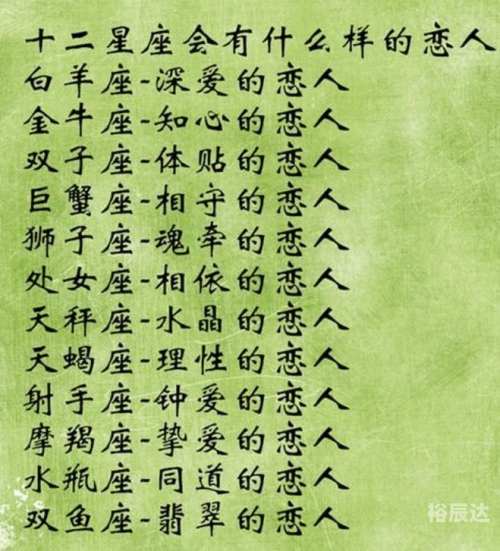 十二星座会有什么样的恋人
白羊座-深爱的恋人
金牛座-知心的恋人
双子座-体贴的恋人
巨蟹座-相守的恋人
狮子座-魂牵的恋人
处女座-相依的恋人
天秤座-水晶的恋人
天蝎座-理性的恋人
射手座-钟爱的恋人
摩羯座-挚爱的恋人
水瓶座-同道的恋人
双鱼座-翡翠的恋人
裕辰达